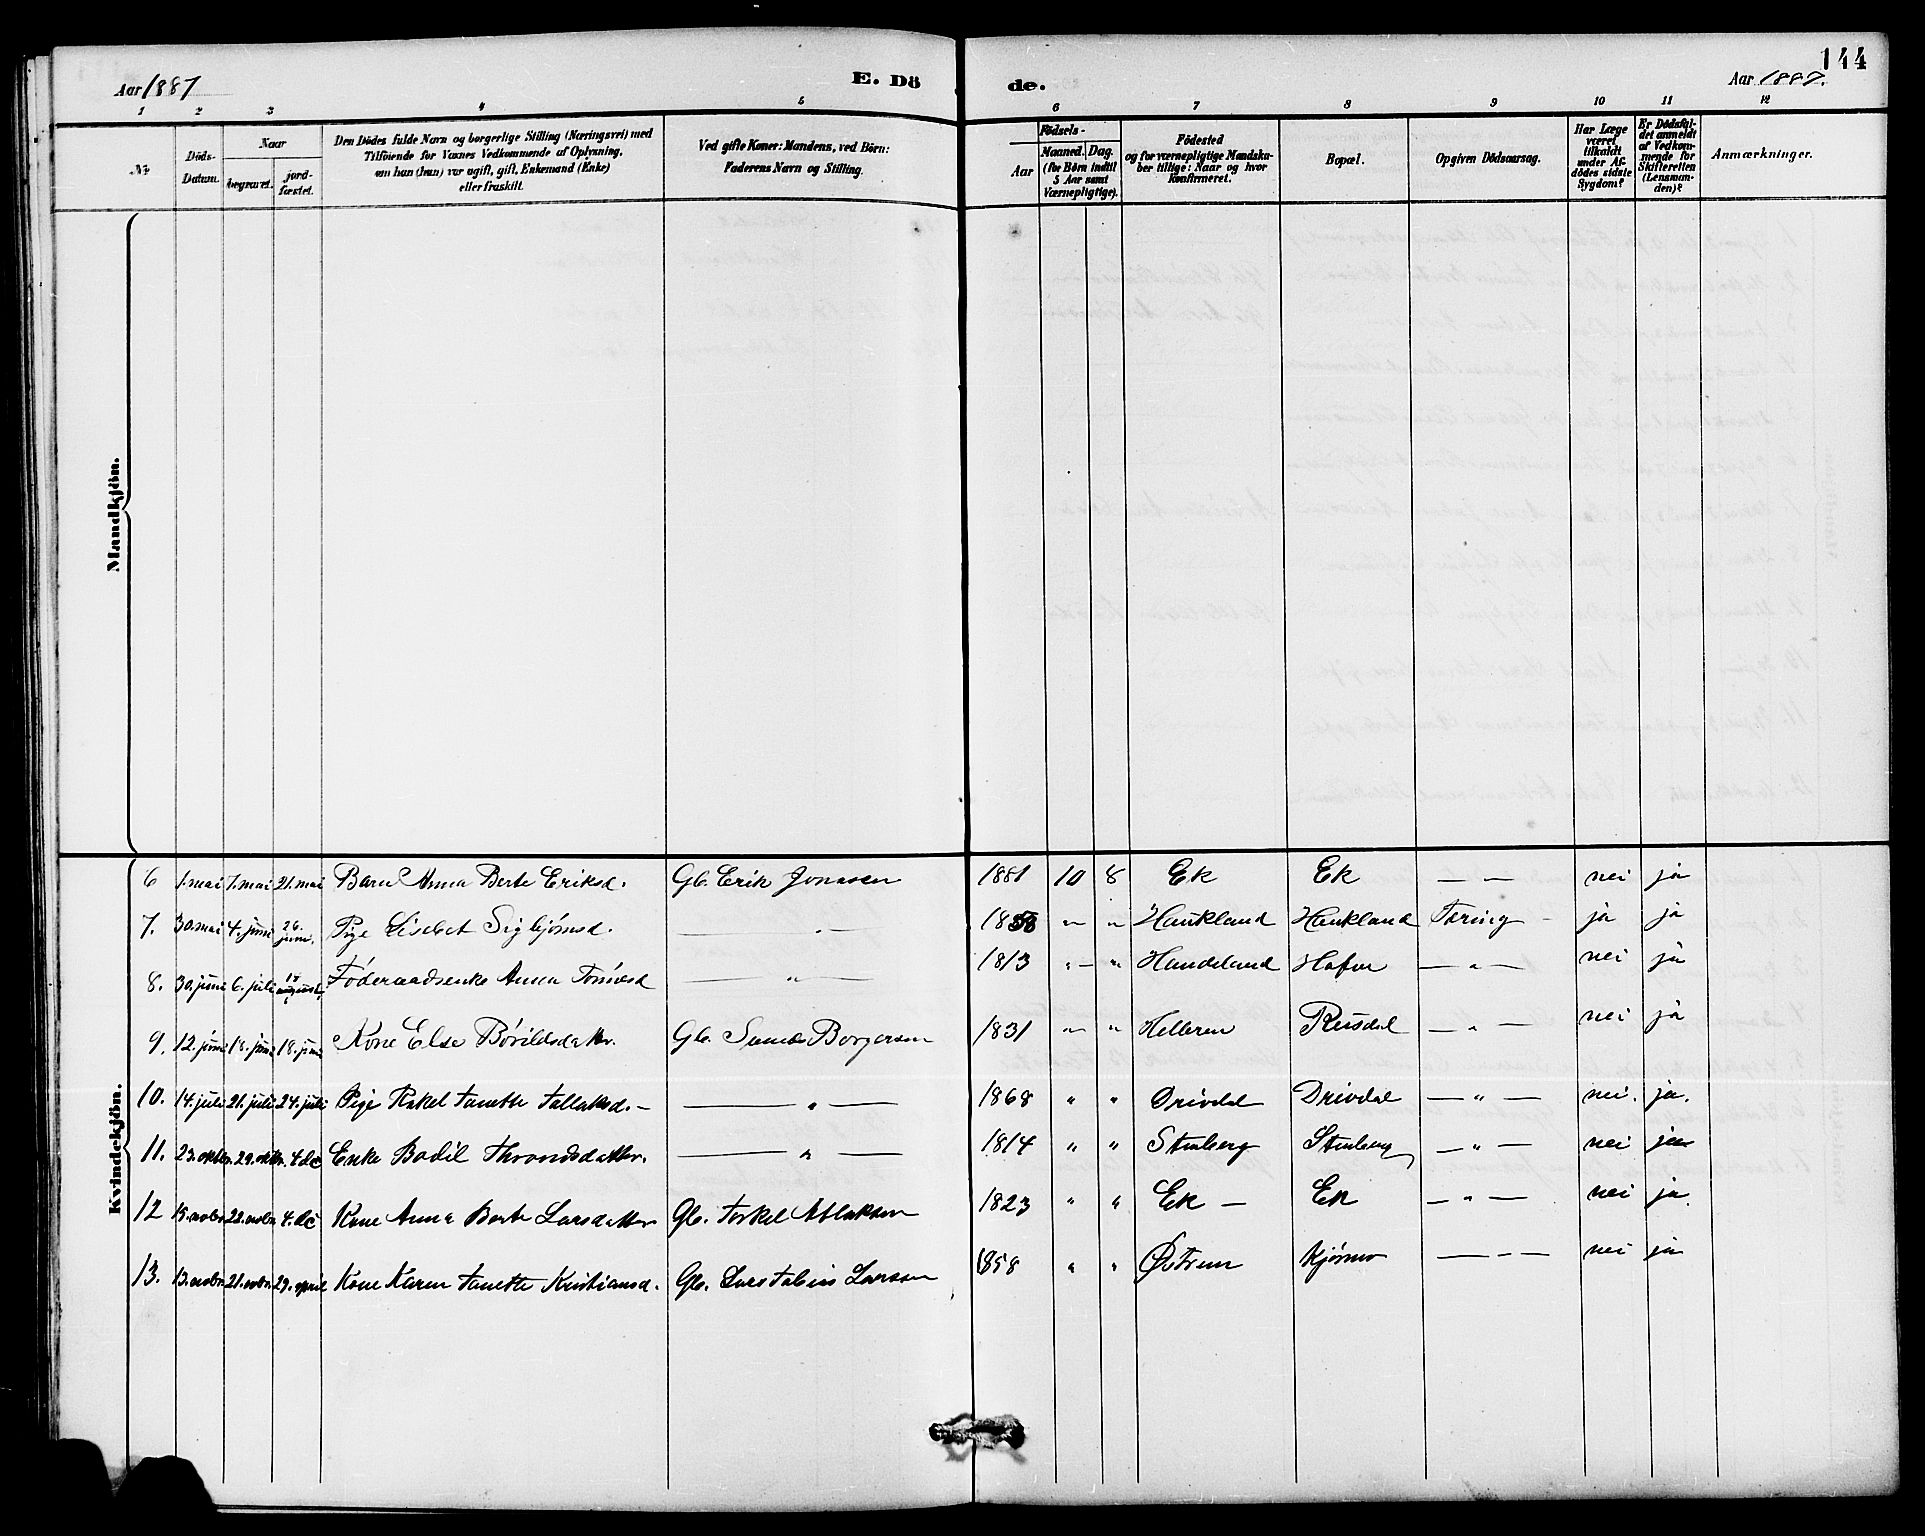 144
Aar 1887 E. Dö de. Aar 1887.
1 2 3 4 5 6 7 8 9 10 11 12
№ Döds-Datum. Naar begravet. jord-fæstet. Den Dödes fulde Navn og borgerlige Stilling (Næringsvei) med Tilföiende for Voxnes Vedkommende af Oplysning, om han (hun) var ugift, gift, Enkemand (Enke) eller fraskilt. Ved gifte Koner: Mandens, ved Börn: Faderens Navn og Stilling. Födsels- Aar Maaned. Dag. (for Börn indtil 5 Aar samt Værnepligtige). Födested og for værnepligtige Mandska-ber tillige: Naar og hvor Konfirmeret. Bopæl. Opgiven Dödsaarsag. Har Læge været tilkaldt under Af-dödes sidste Sygdom? Er Dödsfal-det anmeldt af Vedkom-mende for Skifteretten (Lensman-den)? Anmærkninger.
Mandkjön.
Kvindekjön.
6 1. mai 7. mai 21. mai Barn Anna Berte Eriksd. Gb. Erik Jonasen 1881 10 8 Ek Ek — — nei ja
7. 30. mai 4. juni 26. juni. Pige Lisebet Sigbjørnsd. — " — 18 " " Haukland Haukland Tæring ja ja
8. 30. juni 6. juli august Föderaadsenke Anna Tønnesd — " — 1813 " " Handeland Hafsø — " — nei ja
9. 12. juni 18. juni 18. juni Kone Else Bórildsdatter. Gb. Borgersen 1831 " " Helleren Rusdal — " — nei ja
10. 14. juli 21. juli 24. juli Pige Rakel Tanette Tallaksd. — — " — 1868 " " Drivdal Drivdal — " — nei. ja.
11. 23. oktbr. 29. oktbr. 4. dc Enke Bodil Throndsdatter. — " — 1814 " " Stenberg Stenberg — " — nei ja
12 15. novbr 22. novbr 4. dc Kone Anna Berte Larsdatter Gb. Torkel Atlaksen 1823 " " Ek — Ek — " — nei ja.
13. 13. novbr. 21. novbr. 29. april Kone Karen Tanette Kristiansd. Gb. Lars Tobias Larsen 1858 " " Østrem — " — nei ja